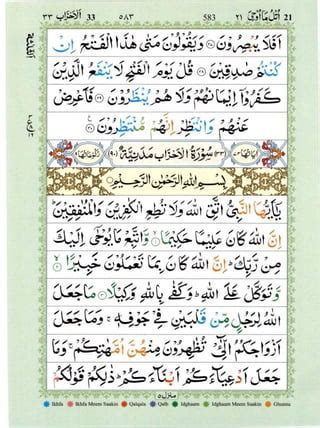 ٣٣ الاحزاب 33 ٥٨٣ 583 ٢١ اتل ما اوحی 21
اَفَلَا يُبْصِرُوْنَ ۞ وَيَقُوْلُوْنَ مَتٰى هٰذَا الْفَتْحُ اِنْ
كُنْتُمْ صٰدِقِيْنَ ۞ قُلْ يَوْمَ الْفَتْحِ لَا يَنْفَعُ الَّذِيْنَ
كَفَرُوْۤا اِيْمَانُهُمْ وَلَا هُمْ يُنْظَرُوْنَ ۞ فَاَعْرِضْ
عَنْهُمْ وَانْتَظِرْ اِنَّهُمْ مُّنْتَظِرُوْنَ ۞
(٣٣) سُوْرَةُ الْاَحْزَابِ مَدَنِيَّةٌ (٩٠)
بِسْمِ اللّٰهِ الرَّحْمٰنِ الرَّحِيْمِ
يٰۤاَيُّهَا النَّبِىُّ اتَّقِ اللّٰهَ وَلَا تُطِعِ الْكٰفِرِيْنَ وَالْمُنٰفِقِيْنَ
اِنَّ اللّٰهَ كَانَ عَلِيْمًا حَكِيْمًا ۞ وَّاتَّبِعْ مَا يُوْحٰۤى اِلَيْكَ
مِنْ رَّبِّكَ اِنَّ اللّٰهَ كَانَ بِمَا تَعْمَلُوْنَ خَبِيْرًا ۞
وَّتَوَكَّلْ عَلَى اللّٰهِ وَكَفٰى بِاللّٰهِ وَكِيْلًا ۞ مَا جَعَلَ
اللّٰهُ لِرَجُلٍ مِّنْ قَلْبَيْنِ فِىْ جَوْفِهٖ وَمَا جَعَلَ
اَزْوَاجَكُمُ الّٰٓـئِْ تُظٰهِرُوْنَ مِنْهُنَّ اُمَّهٰتِكُمْ وَمَا
جَعَلَ اَدْعِيَآءَكُمْ اَبْنَآءَكُمْ ذٰلِكُمْ قَوْلُكُمْ
منزل ٥
Ikhfa Ikhfa Meem Saakin Qalqala Qalb Idghaam Idghaam Meem Saakin Ghunna